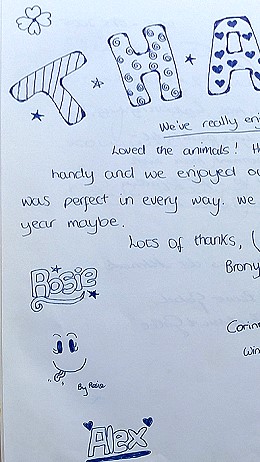 THA
We've really
Loved the animals! H
handy and we enjoyed
was perfect in every way. we
year maybe.
Lots of thanks, (
Brony
Rosie
By Rosie
Alex